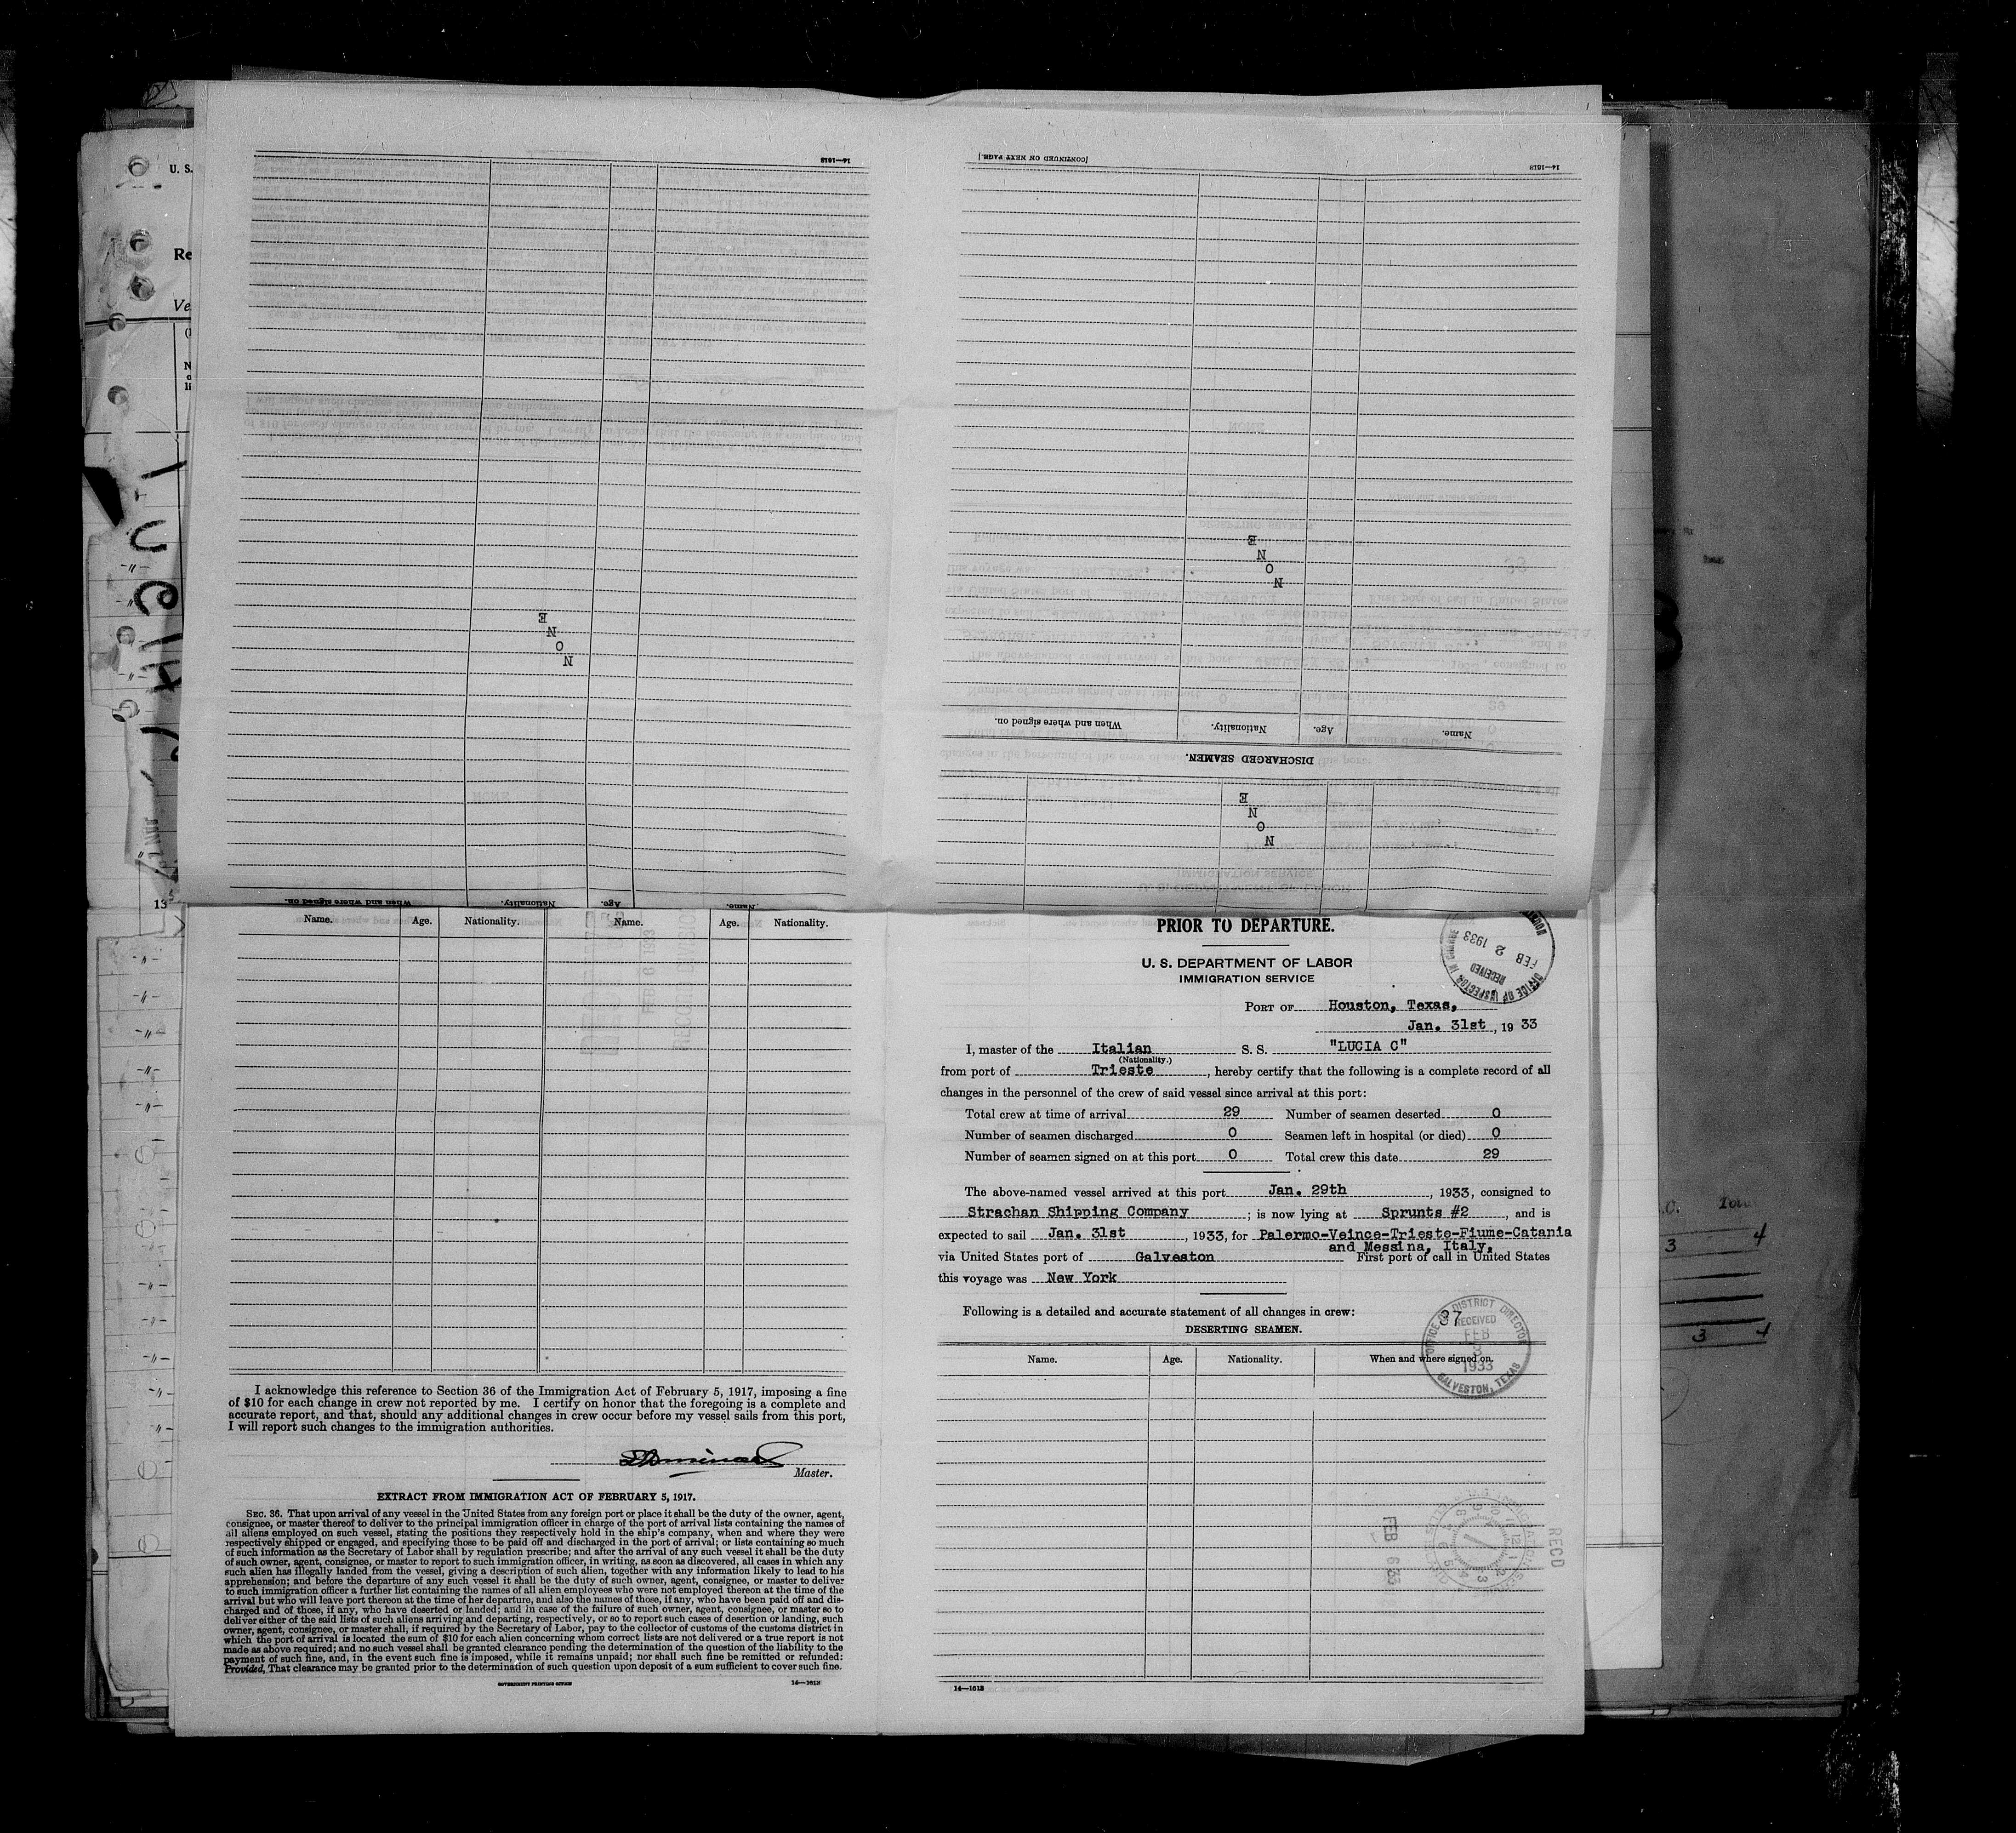 14—1618
[CONTINUED ON NEXT PAGE.]
14—1618
NONE
NONE
When and where signed on. Nationality. Age. Name.
DISCHARGED SEAMEN.
NONE
When and where signed on. Nationality. Age. Name.
U. S.
Re
Ve
13
Name. Age. Nationality. Name. Age. Nationality.
I acknowledge this reference to Section 36 of the Immigration Act of February 5, 1917, imposing a fine
of $10 for each change in crew not reported by me. I certify on honor that the foregoing is a complete and
accurate report, and that, should any additional changes in crew occur before my vessel sails from this port,
I will report such changes to the immigration authorities.
Master.
EXTRACT FROM IMMIGRATION ACT OF FEBRUARY 5, 1917.
SEC. 36. That upon arrival of any vessel in the United States from any foreign port or place it shall be the duty of the owner, agent,
consignee, or master thereof to deliver to the principal immigration officer in charge of the port of arrival lists containing the names of
all aliens employed on such vessel, stating the positions they respectively hold in the ship's company, when and where they were
respectively shipped or engaged, and specifying those to be paid off and discharged in the port of arrival; or lists containing so much
of such information as the Secretary of Labor shall by regulation prescribe; and after the arrival of any such vessel it shall be the duty
of such owner, agent, consignee, or master to report to such immigration officer, in writing, as soon as discovered, all cases in which any
such alien has illegally landed from the vessel, giving a description of such alien, together with any information likely to lead to his
apprehension; and before the departure of any such vessel it shall be the duty of such owner, agent, consignee, or master to deliver
to such immigration officer a further list containing the names of all alien employees who were not employed thereon at the time of the
arrival but who will leave port thereon at the time of her departure, and also the names of those, if any, who have been paid off and dis-
charged and of those, if any, who have deserted or landed; and in case of the failure of such owner, agent, consignee, or master so to
deliver either of the said lists of such aliens arriving and departing, respectively, or so to report such cases of desertion or landing, such
owner, agent, consignee, or master shall, if required by the Secretary of Labor, pay to the collector of customs of the customs district in
which the port of arrival is located the sum of $10 for each alien concerning whom correct lists are not delivered or a true report is not
made as above required; and no such vessel shall be granted clearance pending the determination of the question of the liability to the
payment of such fine, and, in the event such fine is imposed, while it remains unpaid; nor shall such fine be remitted or refunded:
Provided, That clearance may be granted prior to the determination of such question upon deposit of a sum sufficient to cover such fine.
GOVERNMENT PRINTING OFFICE 14—1618
PRIOR TO DEPARTURE.
OFFICE OF INSPECTOR IN CHARGE RECEIVED FEB 2 1933
U. S. DEPARTMENT OF LABOR
IMMIGRATION SERVICE
PORT OF Houston, Texas,
Jan. 31st, 1933
I, master of the Italian S. S. "LUCIA C"
(Nationality.)
from port of Trieste, hereby certify that the following is a complete record of all
changes in the personnel of the crew of said vessel since arrival at this port:
Total crew at time of arrival 29 Number of seamen deserted 0
Number of seamen discharged 0 Seamen left in hospital (or died) 0
Number of seamen signed on at this port 0 Total crew this date 29
The above-named vessel arrived at this port Jan. 29th, 1933, consigned to
Strachan Shipping Company; is now lying at Sprunts #2, and is
expected to sail Jan. 31st, 1933, for Palermo-Veince-Trieste-Fiume-Catania
and Messina, Italy,
via United States port of Galveston First port of call in United States
this voyage was New York
Following is a detailed and accurate statement of all changes in crew:
DESERTING SEAMEN.
87
OFFICE OF DISTRICT DIRECTOR RECEIVED FEB 3 1933 GALVESTON, TEXAS
Name. Age. Nationality. When and where signed on.
FEB 6 33
REC'D
14—1618
3 4
3 4